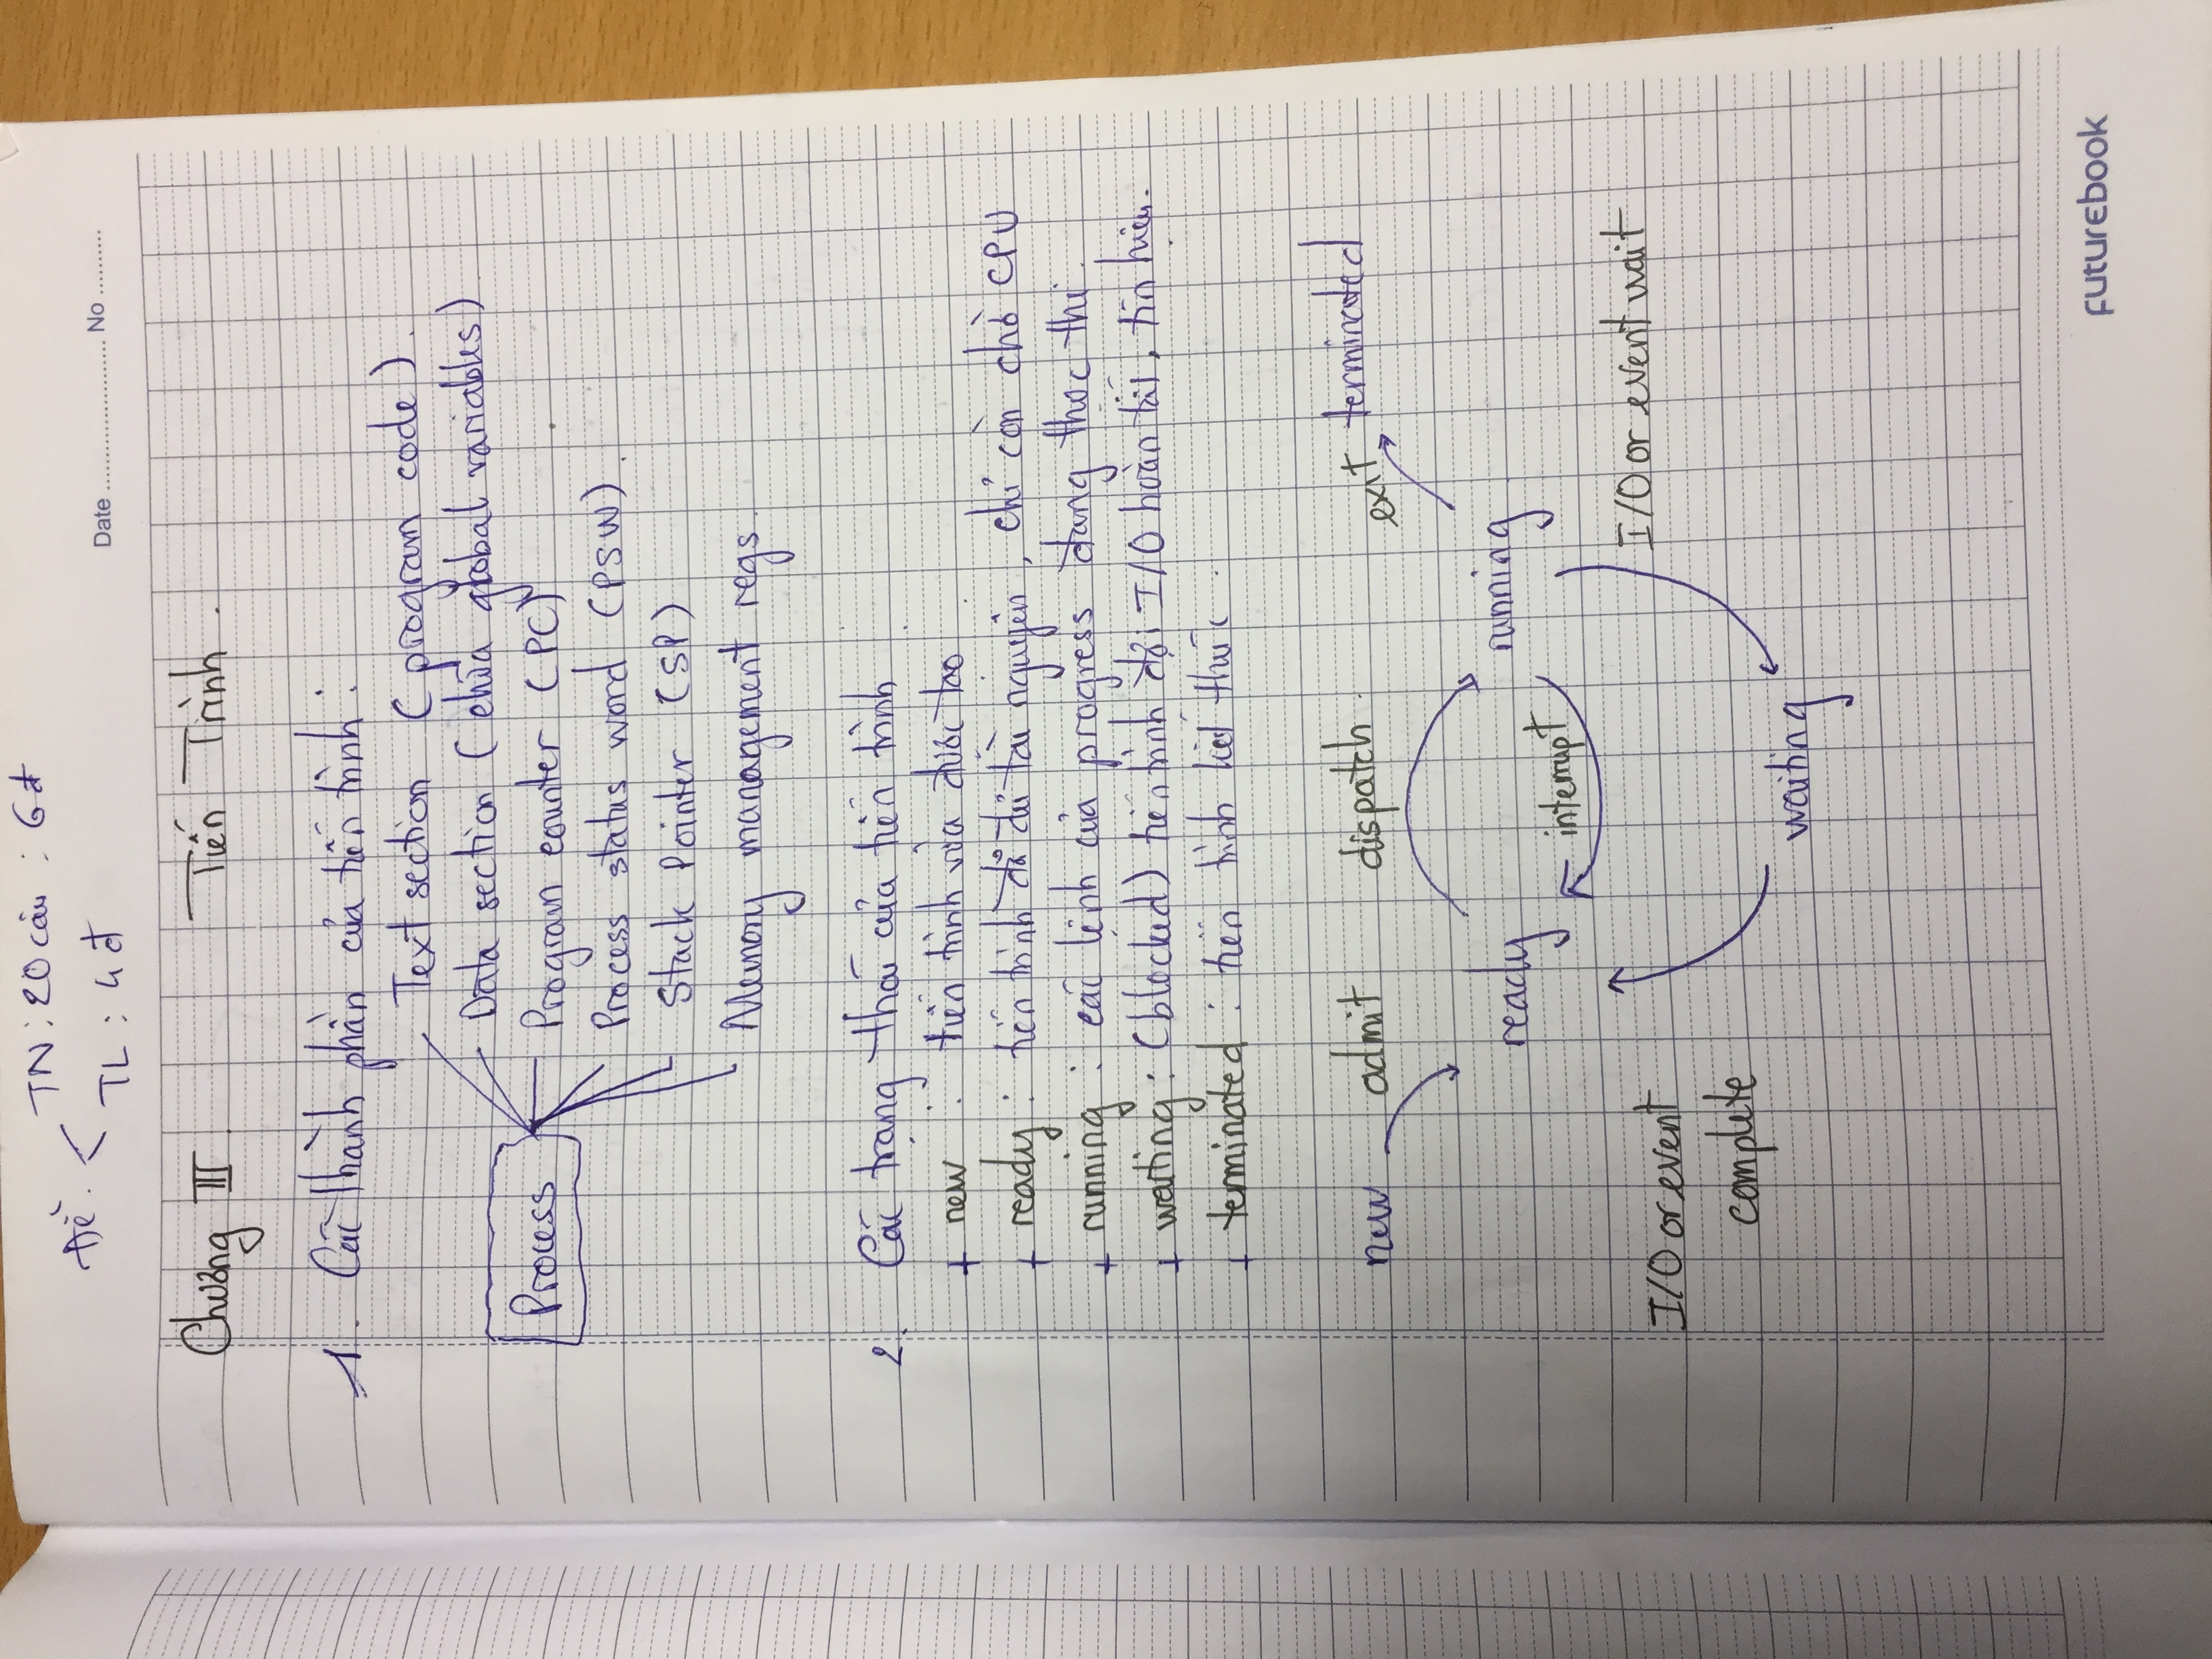 Đề: < TN: 20 câu : 6đ
TL : 4 đ
Date ........................ No ..........
Chương III. Tiến Trình.
1. Các thành phần của tiến trình :
Text section (program code).
Data section (chứa global variables)
Process
Program counter (PC)
Process status word (PSW).
Stack Pointer (SP)
Memory management regs.
2. Các trạng thái của tiến trình
+ new : tiến trình vừa được tạo
+ ready : tiến trình đã đủ tài nguyên, chỉ còn chờ CPU
+ running : các lệnh của progress đang thực thi.
+ waiting : (blocked) tiến trình đợi I/O hoàn tất, tín hiệu.
+ terminated : tiến trình kết thúc.
new admit dispatch exit terminated
ready running
interrupt
I/O or event wait
I/O or event
complete
waiting
FUTUREBOOK